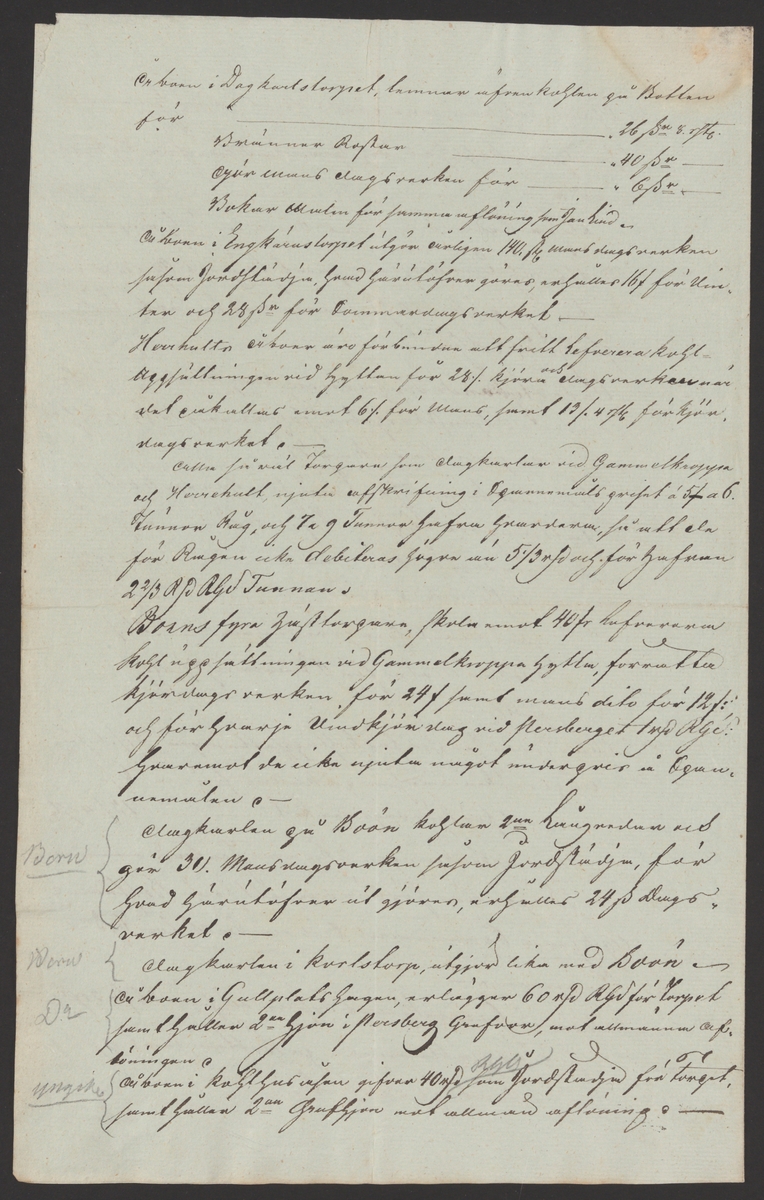 Åboen i Dagkarlstorpet, lemnar äfven kohlen på Botten
för " 26 ßr 8 rst.
Bränner Rostar " 40 ßr
Gjör mans dagsverken för " 6 ßr
Bokar Malm för samma aflöning som Jan Lind
Åboen i Engkärnstorpet utgör årligen 140 st mansdagsverken
såsom Jordstädja, hvad härutöfver göres, erhålles 16 f för Vin-
ter och 28 ßr för Sommardagsverket.
Horrhults Åboer äro förbundne att fritt lefverera kohl-
uppsättningen vid Hyttan för 28 f. kjöra och dagsverken när
det påkallas emot 6 f. för Mans, samt 13 f. 4 rst för kjör-
dagsverket.
Alla så väl Torpare som dagkarlar vid Gammelkroppa
och Horrhult, njuta afskrifning i Spannemåls priset å 5 a 6.
Tunnor Råg, och 7 a 9 Tunnor Hafra hvardera, så att de
för Rågen icke debiteras högre än 5 1/3 rd och för Hafran
2 2/3 Rd RGd Tunnan.
Borns fyra Hästtorpare, skola emot 40 fr lefverera
kohl uppsättningen vid Gammelkroppa Hytta, förrätta
kjördagsverken för 24 f samt mans dito för 12 f:
och för hvarje Vindkjör dag vid Persberget 1 rd RGd:
hvaremot de icke njuta något underpris å Span-
nemålen.
Dagkarlen på Boön kohlar 2ne Laugredar och
Born
gör 30 f. Mansdagsverken såsom Jordstädja, för
hvad härutöfver utgjöres, erhålles 24 ß Dags-
verket.
Born
Dagkarlen i Karlstorp, utgjör lika med Boön
Åboen i Gullplatshagen, erlägger 60 rd RGd för Torpet
Do
samt håller 2ne hjon i Persberg Grufvor, mot allmänna af-
löningen.
RGds
Åboen i Kohlhusåsen gifver 40 rd som Jordstädja för Torpet,
Yngsh.
samt håller 2ne Grufhjon mot allmän aflöning.